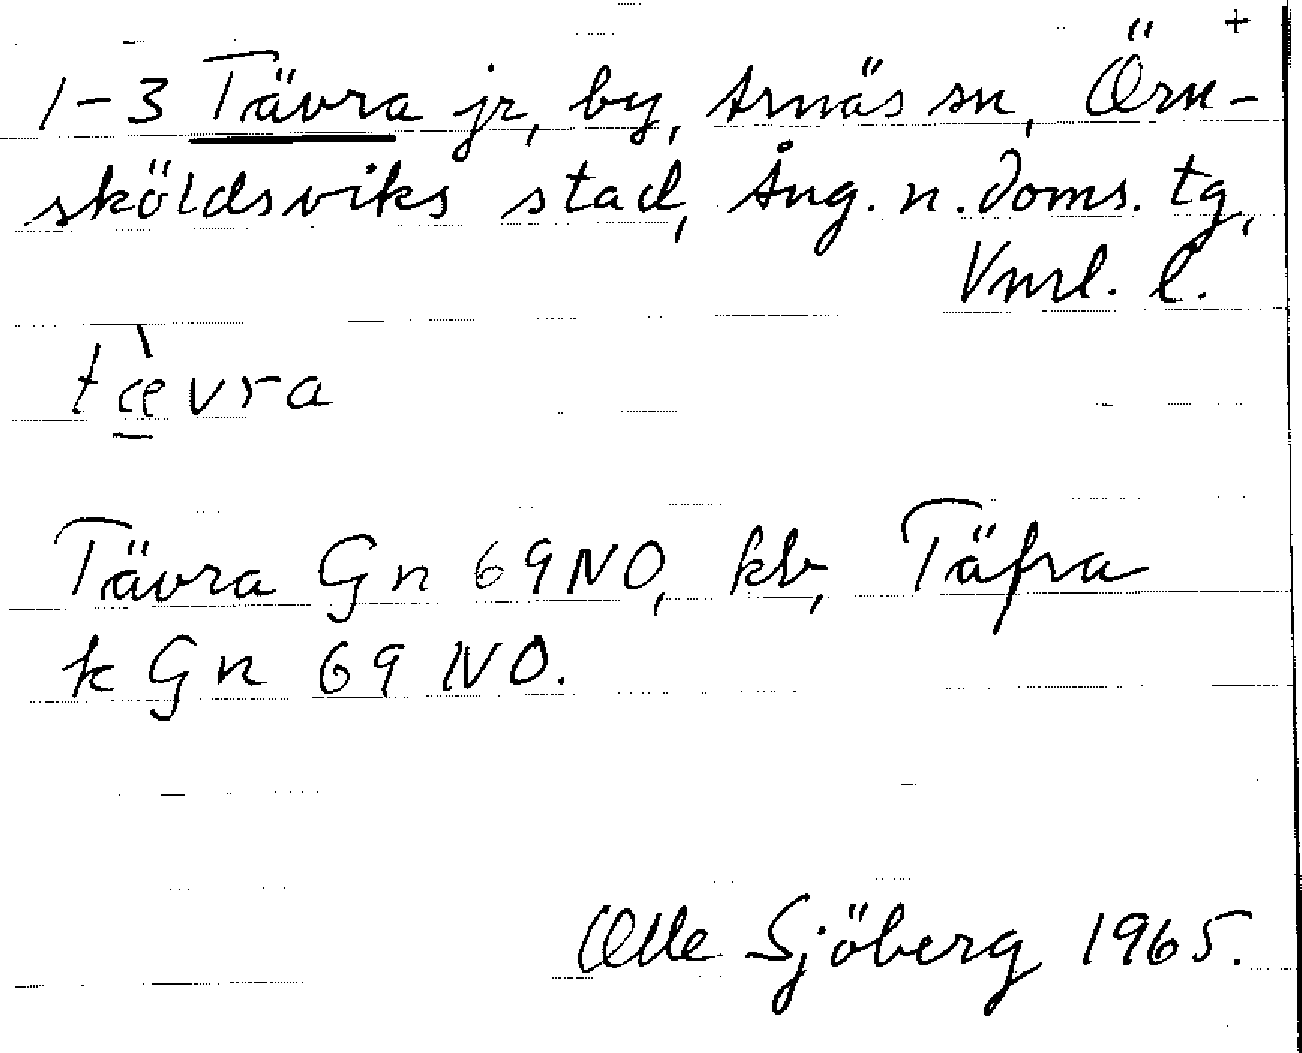 +
1-3 Tävra jr, by, Arnäs sn, Örn-
sköldsviks stad, Ång. n. doms. tg,
Vnrl. l.
tæ̲̀vra
Tävra Gn 69 NO, kb, Täfra
k Gn 69 NO.
Olle Sjöberg 1965.